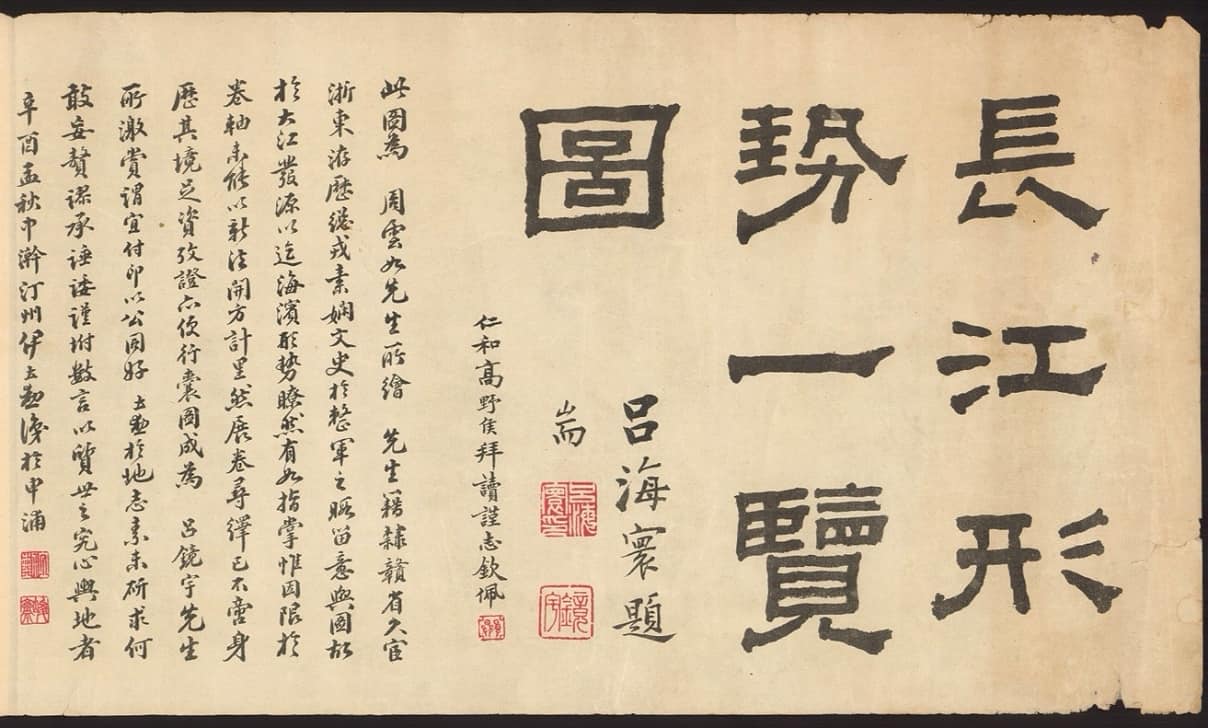 長江形
勢一覽
圖
呂海寰題
耑
仁和高野侯拜讀謹志欽佩
此圖為 周雲如先生所繪 先生籍隸贛省久宦
浙東游歷從戎素嫻文史於整軍之暇留意輿圖故
於大江發源以迄海濱形勢瞭然有如指掌惟因限於
卷軸未能以新法開方計里然展卷尋繹已不啻身
歷其境足資攷證亦便行囊圖成為 呂鏡宇先生
所激賞謂宜付印以公同好 士勳於地志素未研求何
敢妄贅謬承諈諉謹坿數言以質世之究心輿地者
辛酉孟秋中澣汀州伊士勳識於申浦
呂海寰印
鏡宇